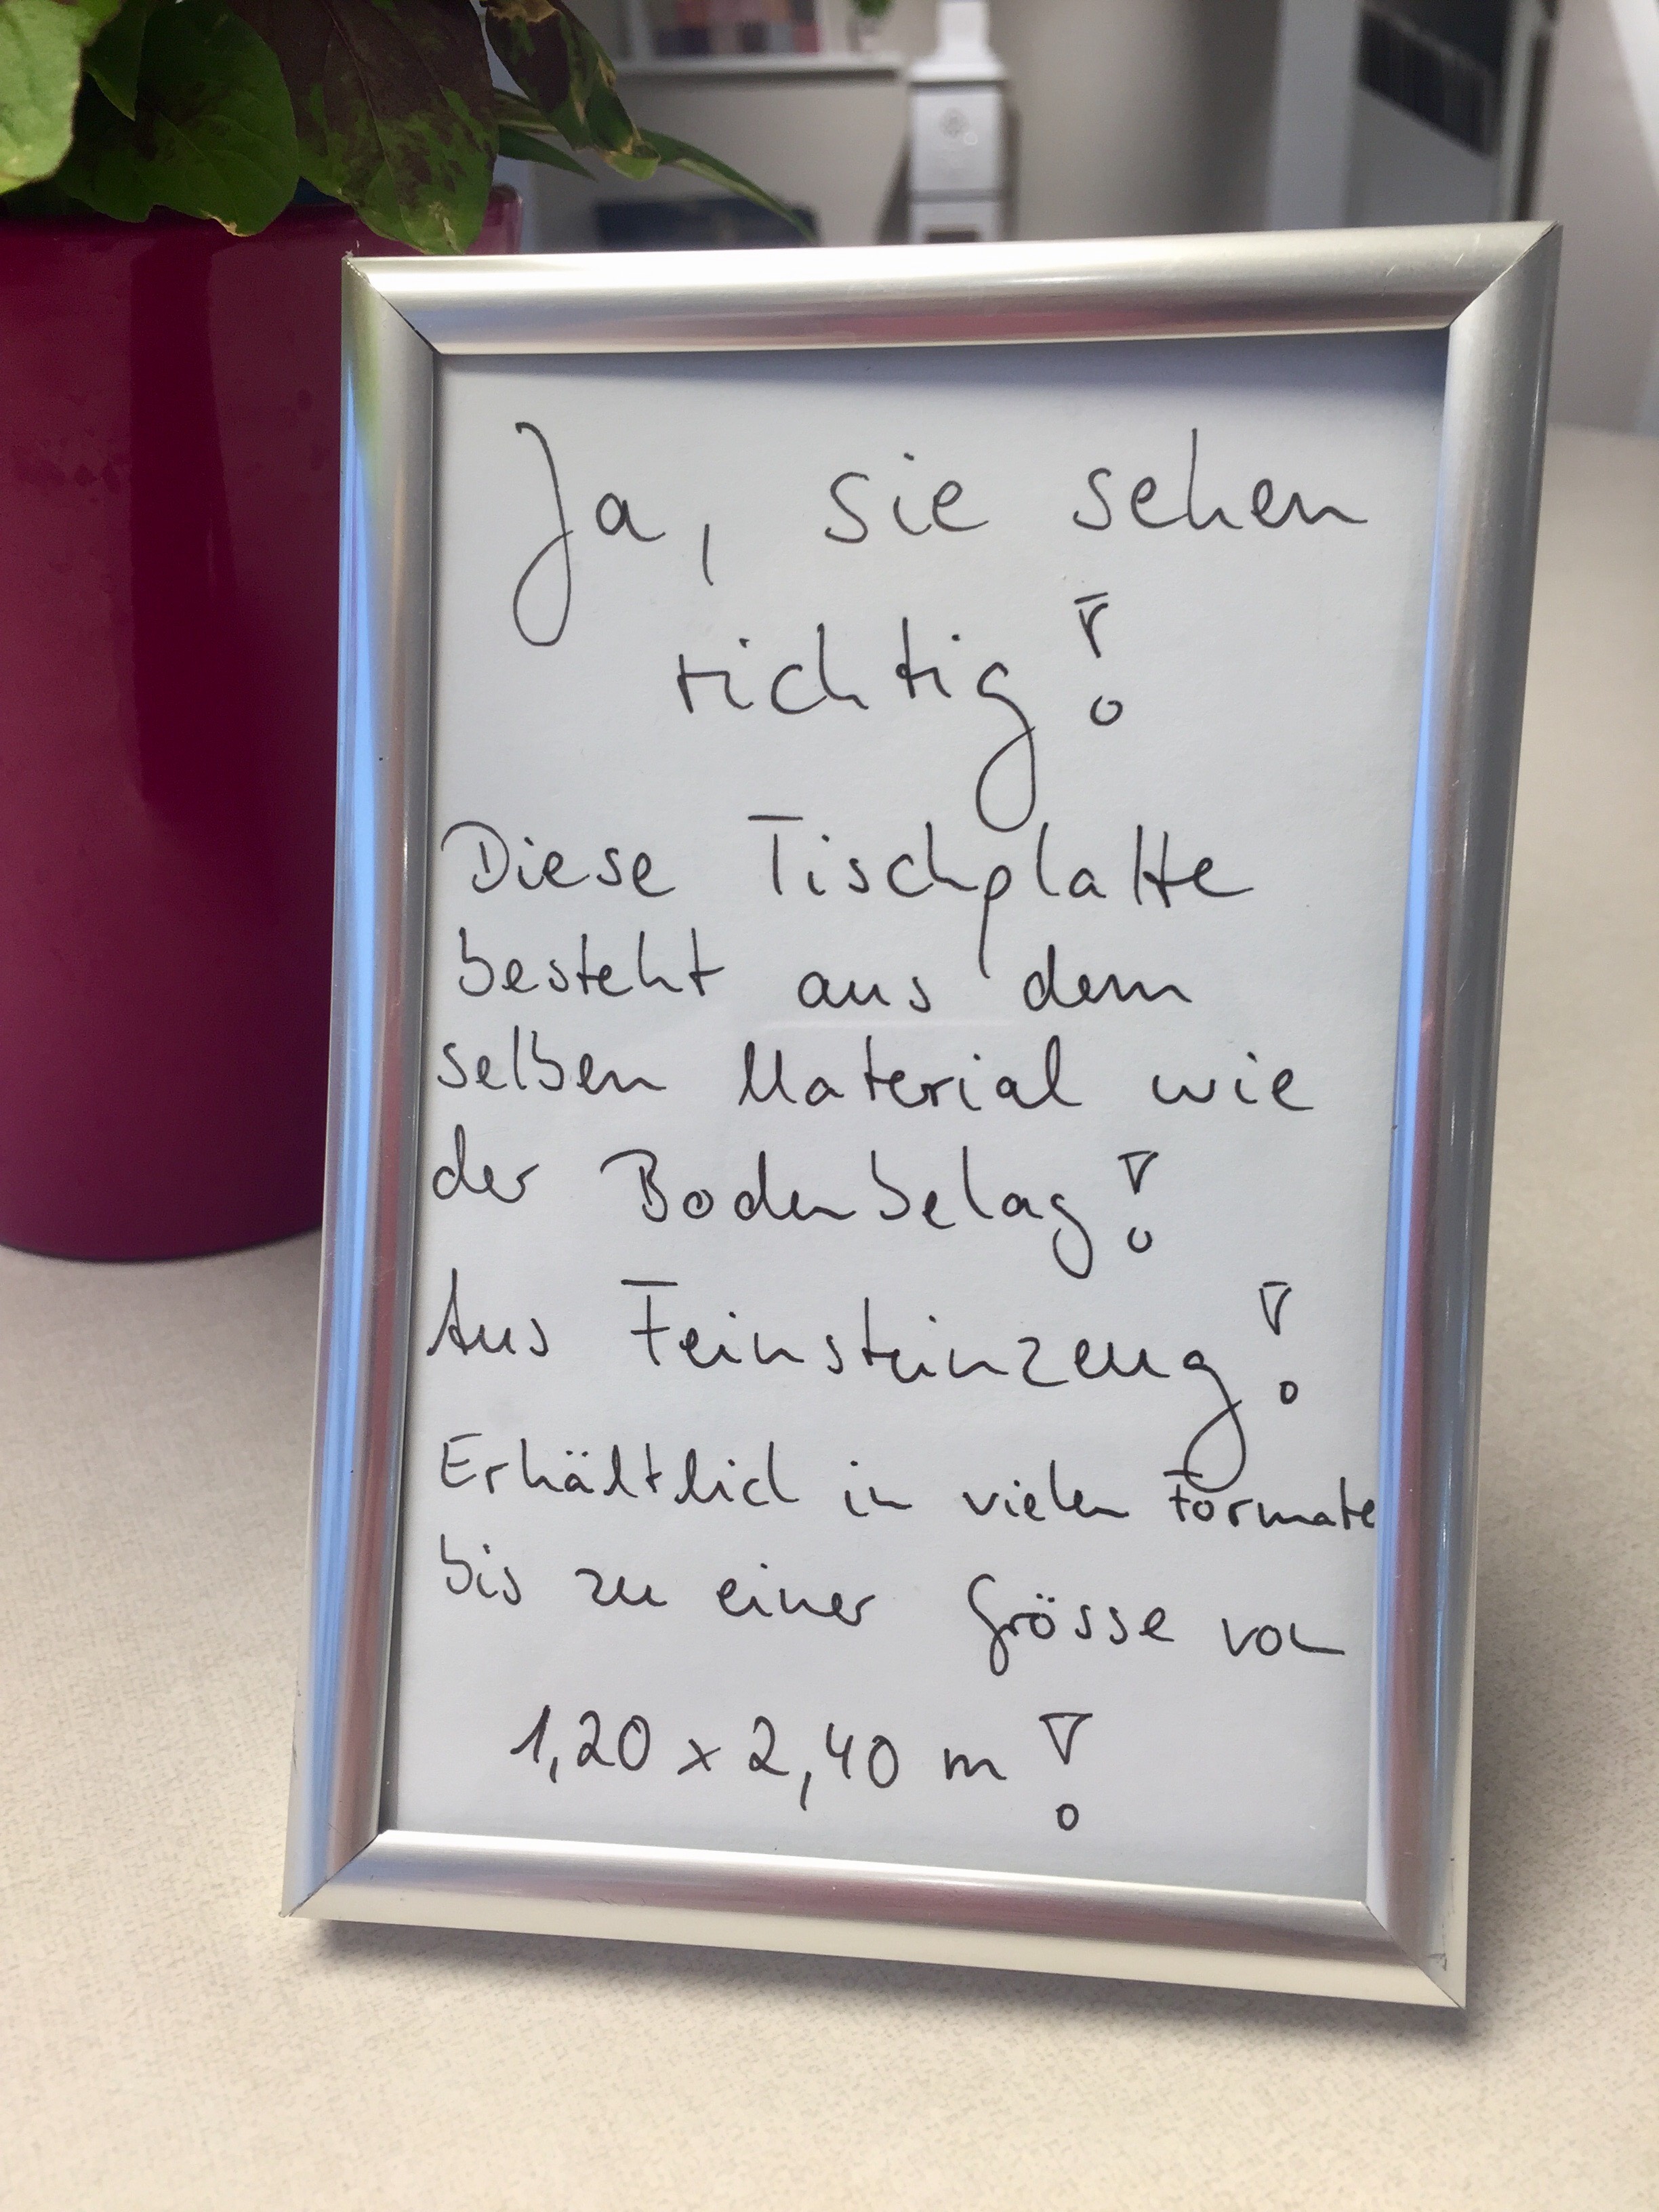 Ja, sie sehen
richtig!
Diese Tischplatte
besteht aus dem
selben Material wie
der Bodenbelag!
Aus Feinsteinzeug!
Erhältlich in vielen Formate
bis zu einer Grösse von
1,20 x 2,40 m!